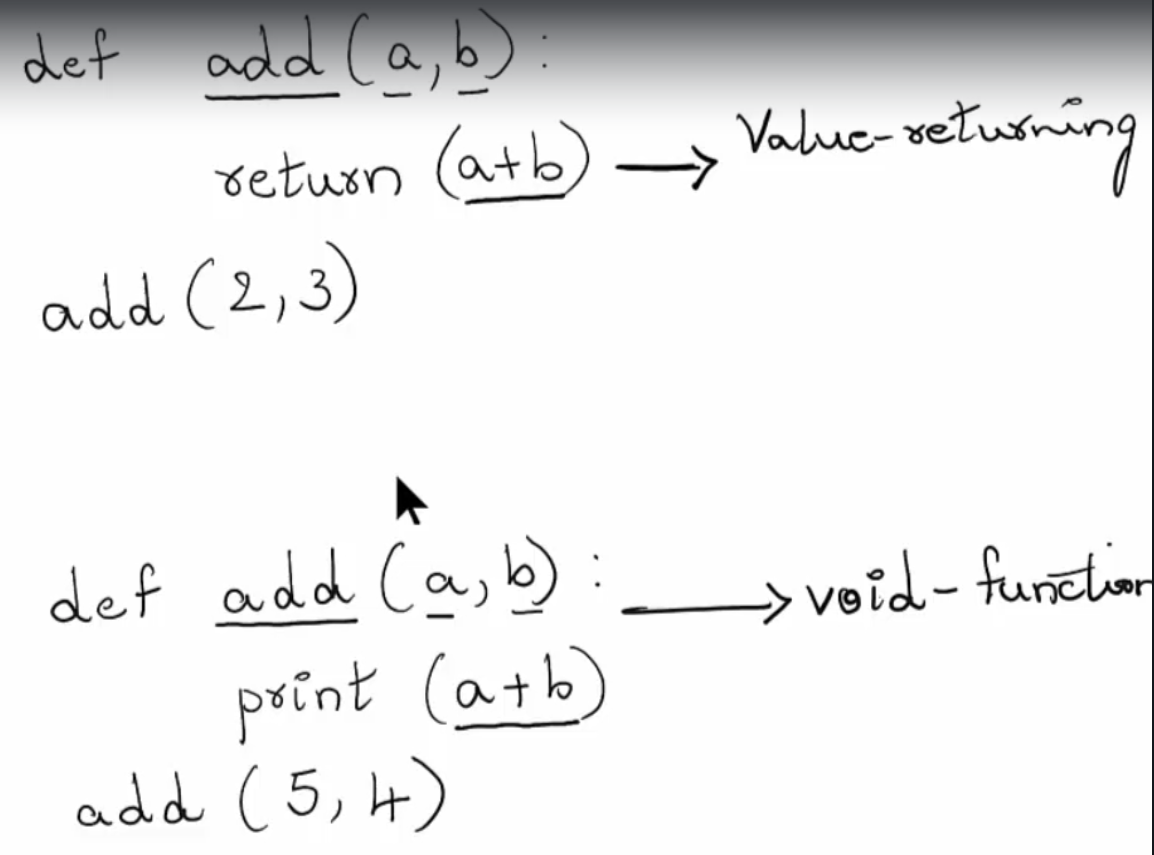 def add (a, b) :
return (a+b) → Value-returning
add (2, 3)
def add (a, b) : → void-function
print (a+b)
add (5, 4)